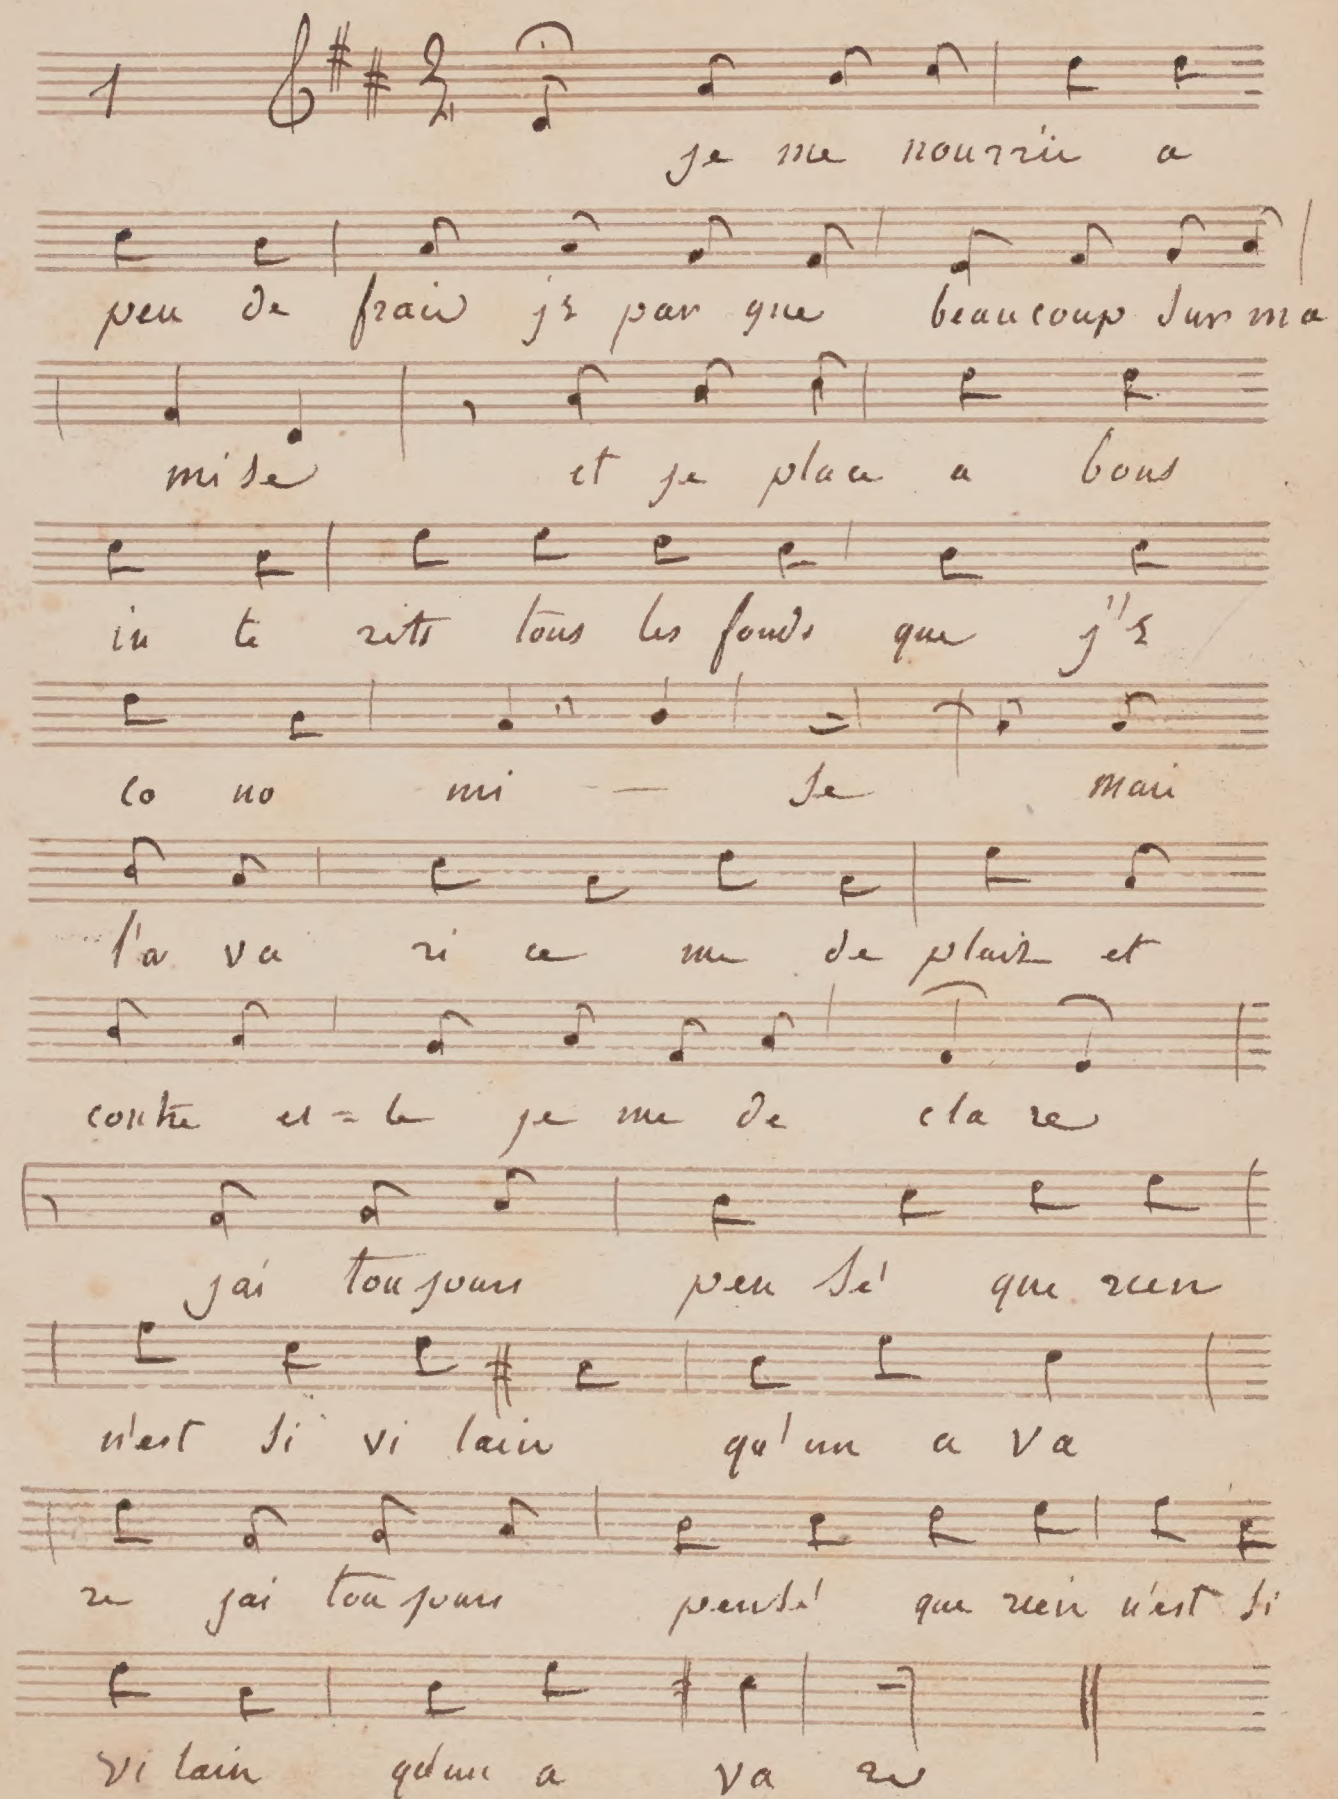 1 2
je me nourris a
peu de frais j's par que beaucoup sur ma
mise et je place a bons
in te rets tous les fonds que j'é
co no mi — se mais
l'a va ri ce me de plait et
contre el=le je me de cla re
jai toujours pen sé que rien
n'est si vi lain qu'un a va
re jai toujours pensé que rien n'est si
vi lain qu'un a va re